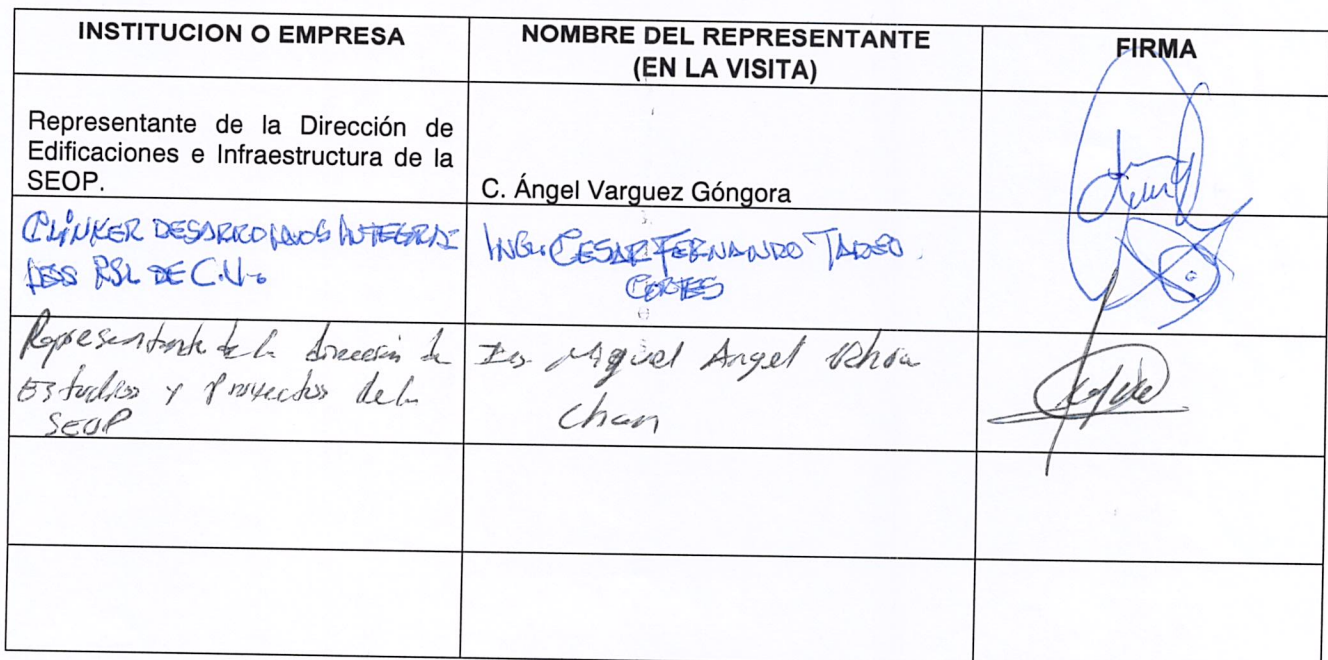 INSTITUCION O EMPRESA
NOMBRE DEL REPRESENTANTE
(EN LA VISITA)
FIRMA
Representante de la Dirección de
Edificaciones e Infraestructura de la
SEOP.
C. Ángel Varguez Góngora
CLINKER DESARROLLOS INTEGRA
DE C.V.
ING. CESAR FERNANDO TADEO
CORTES
Representante de la dirección de
Estudios y Proyectos de la
SEOP
Miguel Angel
Chan